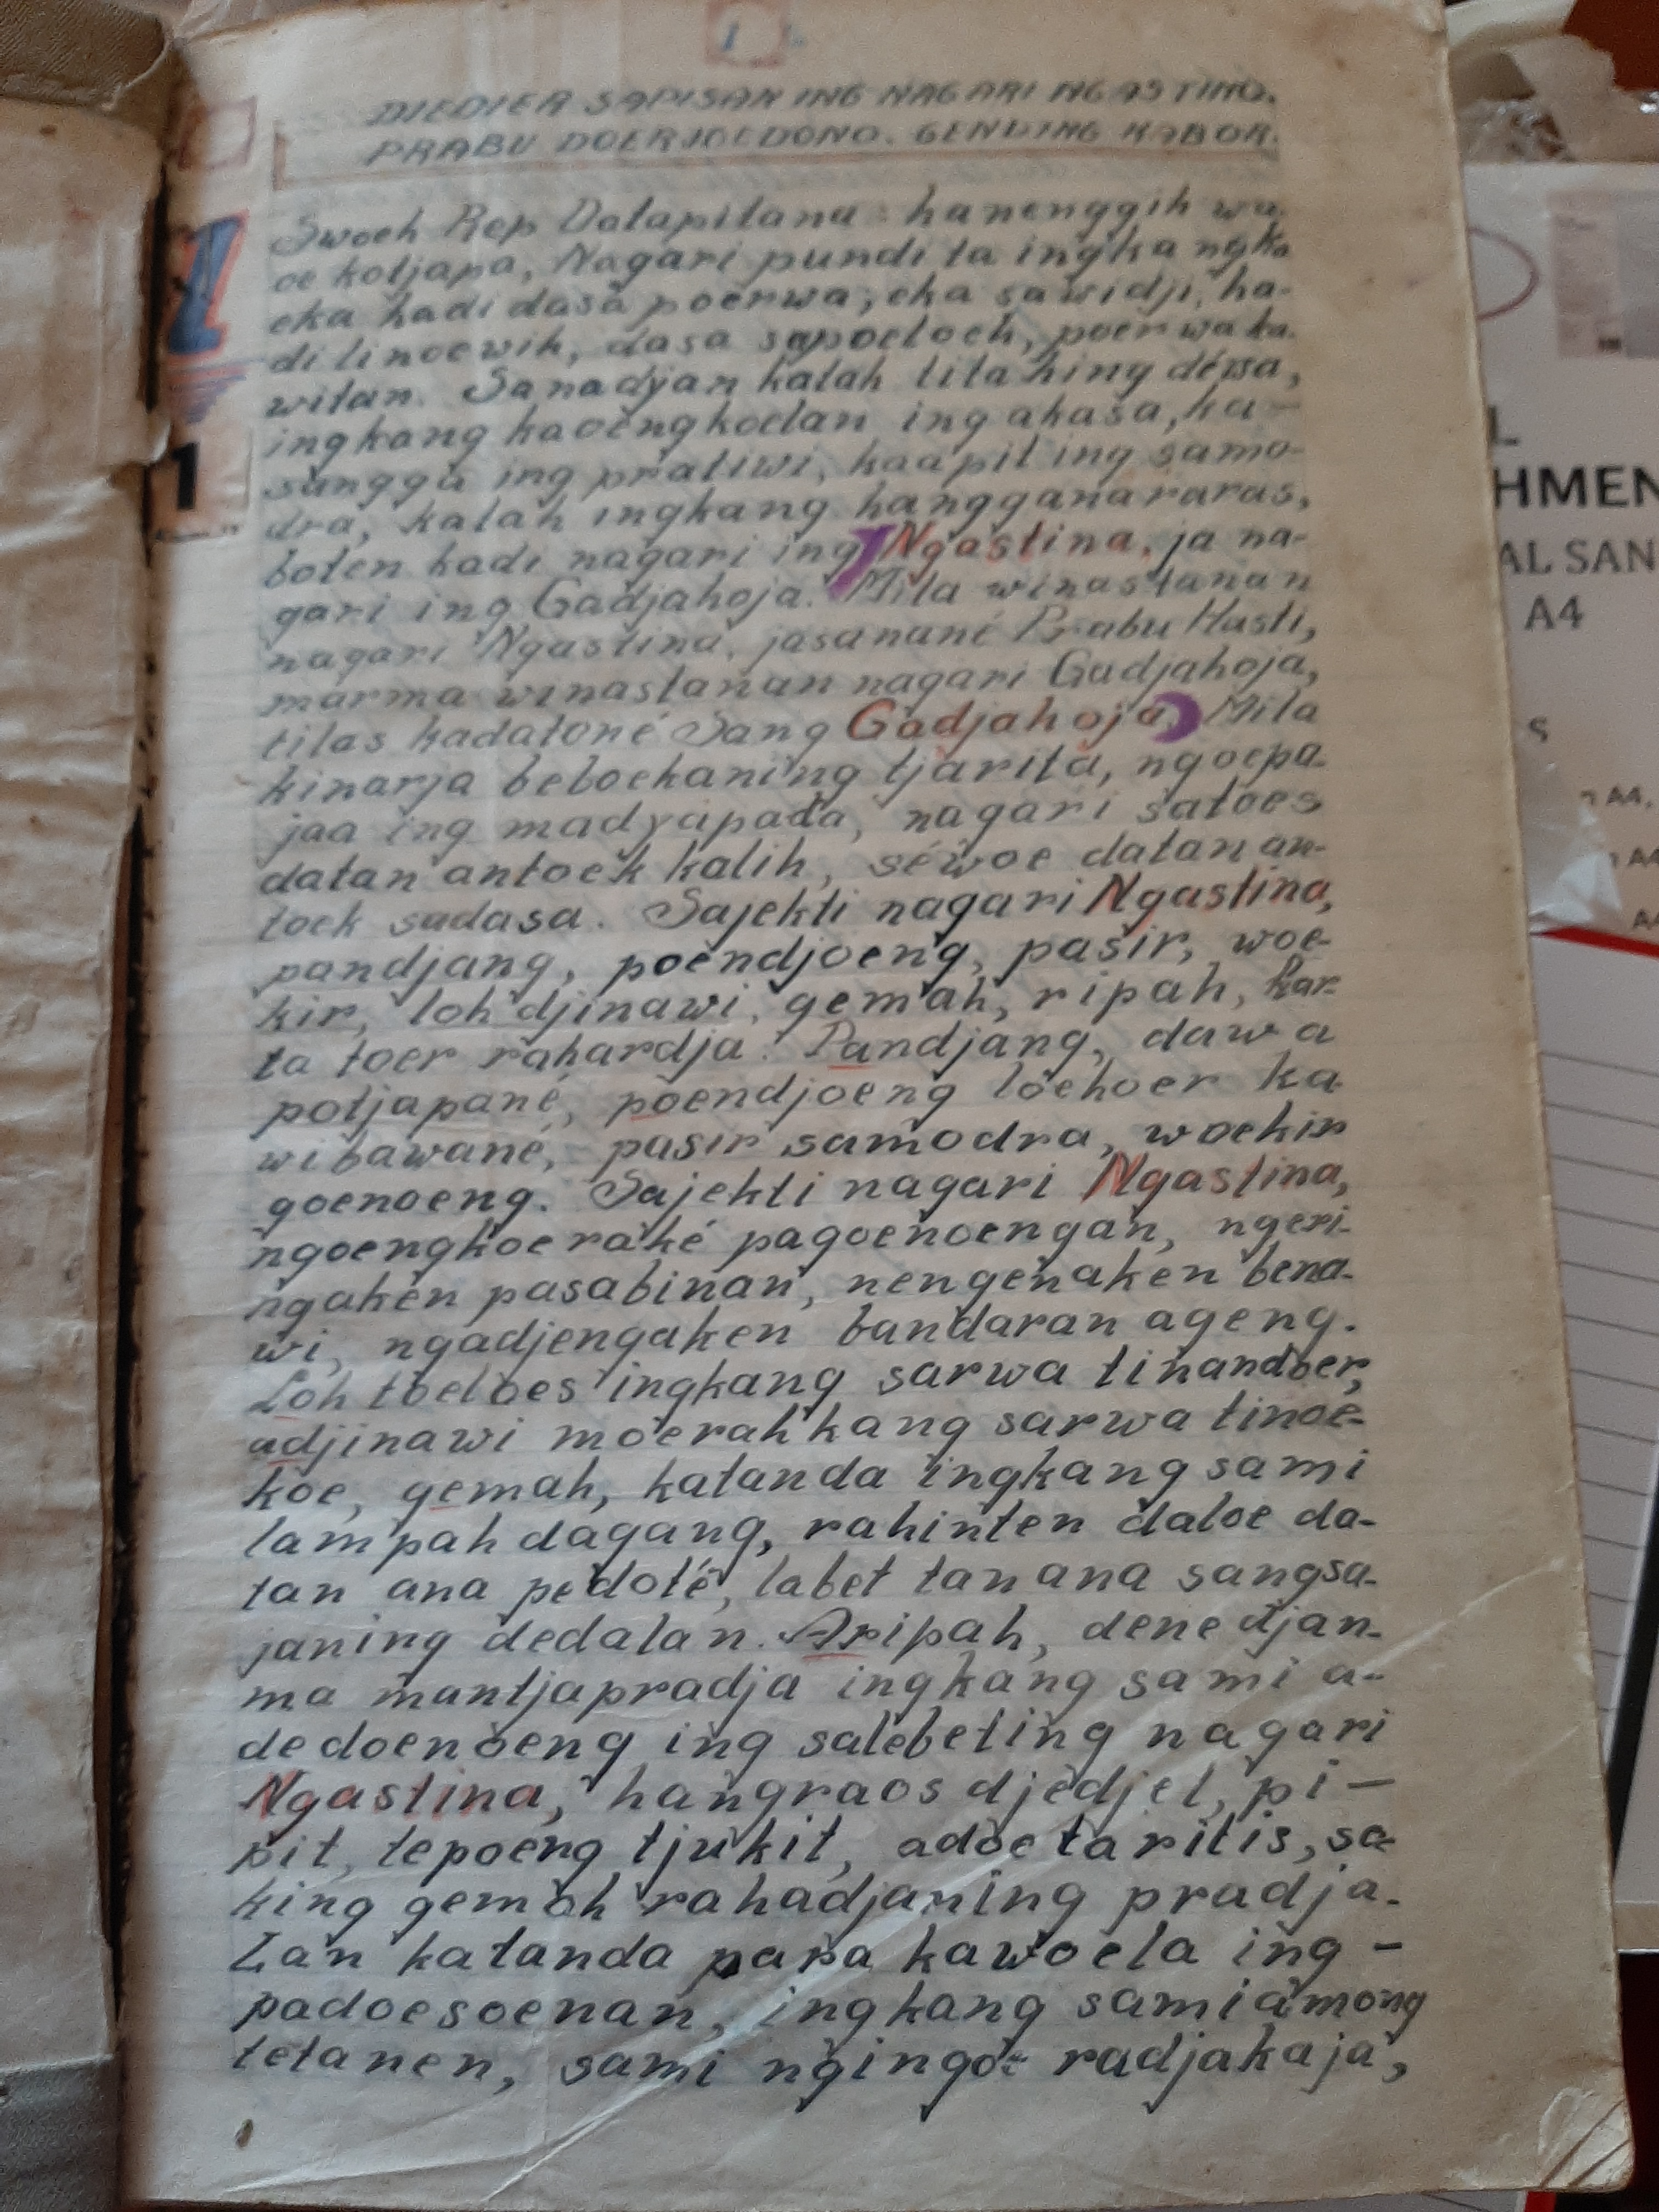 1
DJEDJER SAPISAN ING NAGARI NGASTINO.
PRABU DOERJOEDONO. GENDING KABOR.
1
1
Swoeh Rep Datapitana : hanenggih wa
oe kotjapa, Nagari pundi ta ingka ngka
eka hadi dasa poerwa, eka sawidji, ha-
di linoewih, dasa sapoeloeh, poerwa ka-
witan. Sanadyan katah titahing déwa,
ingkang kaoengkoelan ing akasa, ka-
sangga ing pratiwi, kaapit ing samo-
dra, katah ingkang hanggana raras,
boten kadi nagari ing Ngastina, ja na-
gari ing Gadjahoja. Mila winastanan
nagari Ngastina, jasanané Prabu Hasti,
marma winastanan nagari Gadjahoja,
tilas kadatoné Sang Gadjahoja. Mila
kinarja beboekaning tjarita, ngoepa-
jaa ing madyapada, nagari satoes
datan antoek kalih, séwoe datan an-
toek sadasa. Sajekti nagari Ngastina,
pandjang, poendjoeng, pasir, woe-
kir, loh djinawi, gemah, ripah, kar-
ta toer rahardja. Pandjang, dawa
potjapané, poendjoeng loehoer ka-
wibawané, pasir samodra, woekir
goenoeng. Sajekti nagari Ngastina,
ngoengkoeraké pagoenoengan, ngeri-
ngaken pasabinan, nengenaken bena-
wi, ngadjengaken bandaran ageng.
Loh toeloes ingkang sarwa tinandoer,
adjinawi moerah kang sarwa tinoe-
koe, gemah, katanda ingkang sami
lampah dagang, rahinten daloe da-
tan ana pedoté, labet tan ana sangsa-
janing dedalan. Aripah, dene djan-
ma mantjapradja ingkang sami a-
dedoenoeng ing salebeting nagari
Ngastina, hangraos djedjel, pi-
pit, tepoeng tjukit, adoe taritis, sa-
king gemah rahadjaning pradja.
Lan katanda para kawoela ing -
padoesoenan, ingkang sami among
tetanen, sami ngingoe radjakaja,
HMEN
AL SAN
A4